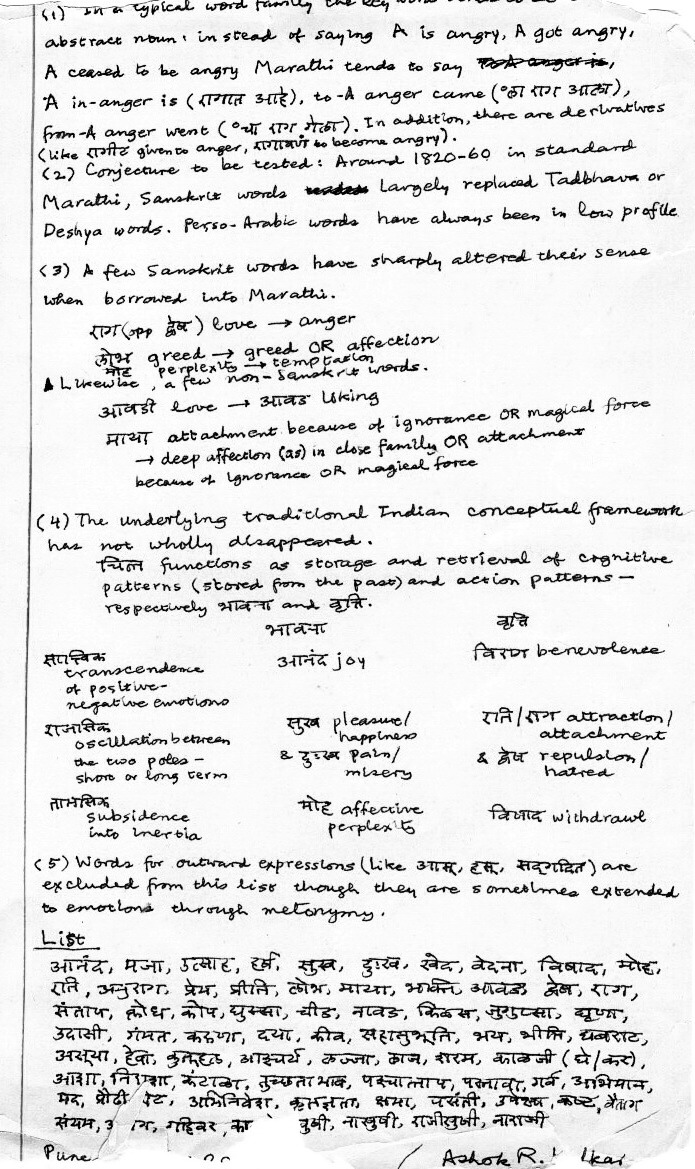 (1) In a typical word family the key word
abstract noun: in stead of saying A is angry, A got angry,
A ceased to be angry Marathi tends to say
A in-anger is (रागात आहे), to-A anger came (°ला राग आला),
from-A anger went (°चा राग गेला). In addition, there are derivatives
(like रागीट given to anger, रागावणं to become angry).
(2) Conjecture to be tested: Around 1820-60 in standard
Marathi, Sanskrit words Largely replaced Tadbhava or
Deshya words. Perso-Arabic words have always been in low profile
(3) A few Sanskrit words have sharply altered their sense
when borrowed into Marathi.
राग (opp द्वेष) love → anger
लोभ greed → greed OR affection
मोह perplexity → temptation
Likewise, a few non-Sanskrit words.
आवडी love → आवड liking
माया attachment because of ignorance OR magical force
→ deep affection (as) in close family OR attachment
because of ignorance OR magical force
(4) The underlying traditional Indian conceptual framework
has not wholly disappeared.
चित्त functions as storage and retrieval of cognitive
patterns (stored from the past) and action patterns —
respectively भावना and वृत्ति.
भावना वृत्ति
सात्त्विक transcendence of positive-negative emotions
आनंद joy
benevolence
राजसिक oscillation between the two poles – short or long term
सुख pleasure/happiness & दुःख pain/misery
रति/राग attraction/attachment & द्वेष repulsion/hatred
तामसिक subsidence into inertia
मोह affective perplexity
विषाद withdrawl
(5) Words for outward expressions (like आसू, हसू, सद्गदित) are
excluded from this list though they are sometimes extended
to emotions through metonymy.
List
आनंद, मजा, उत्साह, हर्ष, सुख, दुःख, खेद, वेदना, विषाद, मोह,
रति, अनुराग, प्रेम, प्रीति, लोभ, माया, भक्ति, आवड, द्वेष, राग,
संताप, क्रोध, कोप, घुस्सा, चीड, नावड, किळस, जुगुप्सा, घृणा,
उदासी, गंमत, करुणा, दया, कीव, सहानुभूति, भय, भीति, घबराट,
असूया, हेवा, कुतूहल, आश्चर्य, लज्जा, लाज, शरम, काळजी (घे/कर),
आशा, निराशा, कंटाळा, तुच्छताभाव, पश्चात्ताप, पस्तावा, गर्व, अभिमान,
मद, प्रौढी, अभिनिवेश, कृतज्ञता, क्षमा, पसंती, उपेक्षा, कष्ट, वैताग
संयम, गहिवर, नाखुषी, राजीखुषी, नाराजी
Pune
Ashok R.